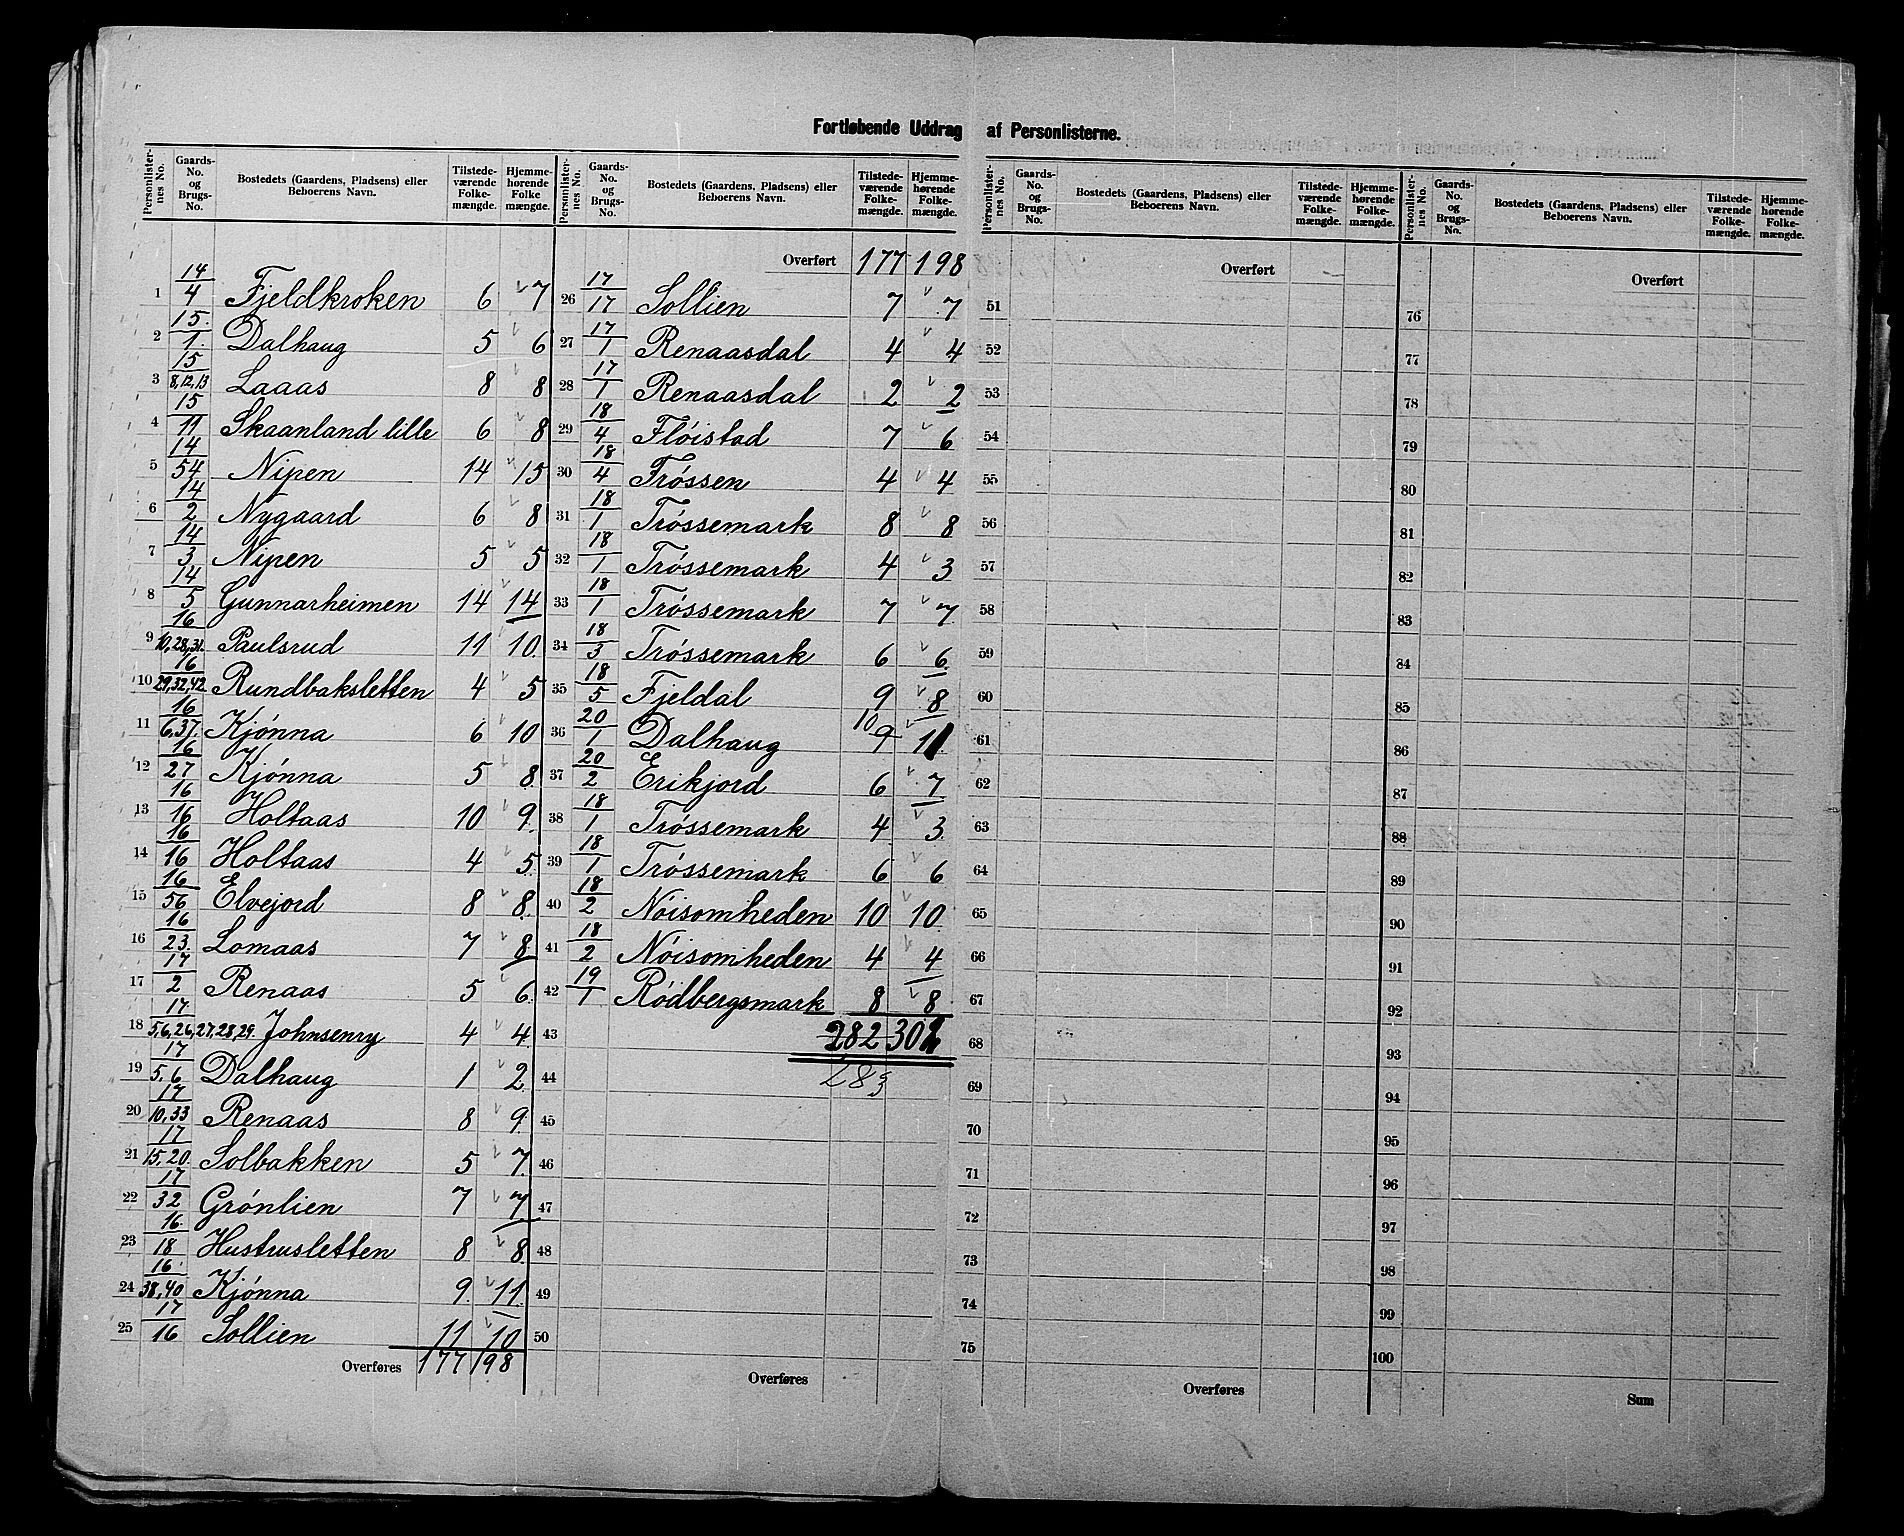 Fortløbende Uddrag af Personlisterne.
Personlister- nes No. | Gaards- No. og Brugs- No. | Bostedets (Gaardens, Pladsens) eller Beboerens Navn. | Tilstede- værende Folke- mængde. | Hjemme- hørende Folke mængde.
1 14/4 Fjeldkroken 6 7
2 15./1. Dalhaug 5 6
3 15/8,12,13 Laaas 8 8
4 15/11 Skaanland lille 6 8
5 14/54 Nipen 14 15
6 14/2 Nygaard 6 8
7 14/3 Nipen 5 5
8 14/5 Gunnarheimen 14 14
9 16/10,28,31. Paulsrud 11 10.
10 16/29,32,42 Rundbaksletten 4 5
11 16/6,37. Kjønna 6 10
12 16/27 Kjønna 5 8.
13 16/16 Holtaas 10 9.
14 16/16 Holtaas 4 5
15 16/56 Elvejord 8 8.
16 16/23. Lomaas 7 8
17 17/2 Renaas 5 6.
18 17/5,6,26,27,28,29. Johnsenry 4 4
19 17/5,6 Dalhaug 1 2
20 17/10,33 Renaas 8 9.
21 17/15,20. Solbakken 5 7
22 17/32 Grønlien 7 7
23 16./18 Hustrusletten 8 8.
24 16./38,40 Kjønna 9. 11.
25 17/16 Sollien 11 10
Overføres 177 198
Personlister- nes No. | Gaards- No. og Brugs- No. | Bostedets (Gaardens, Pladsens) eller Beboerens Navn. | Tilstede- værende Folke- mængde. | Hjemme- hørende Folke- mængde.
Overført 177 198
26 17/17 Sollien 7 7
27 17/1 Renaasdal 4 4
28 17/1 Renaasdal 2 2
29 18/4 Fløistad 7 6
30 18/4 Trøssen 4 4
31 18/1 Trøssemark 8 8
32 18/1 Trøssemark 4 3
33 18/1 Trøssemark 7 7
34 18/3 Trøssemark 6 6
35 18/5 Fjeldal 9 8
36 20/1 Dalhaug 10 9 11
37 20/2 Erikjord 6 7
38 18/1 Trøssemark 4 3
39 18/1 Trøssemark 6 6
40 18/2 Nøisomheden 10 10
41 18/2 Nøisomheden 4 4
42 19/1 Rødbergsmark 8 8
43 282 302
44 283
45
46
47
48
49
50
Overføres
Personlister- nes No. | Gaards- No. og Brugs- No. | Bostedets (Gaardens, Pladsens) eller Beboerens Navn. | Tilstede- værende Folke- mængde. | Hjemme- hørende Folke- mængde.
Overført
51
52
53
54
55
56
57
58
59
60
61
62
63
64
65
66
67
68
69
70
71
72
73
74
75
Overføres
Personlister- nes No. | Gaards- No. og Brugs- No. | Bostedets (Gaardens, Pladsens) eller Beboerens Navn. | Tilstede- værende Folke- mængde. | Hjemme- hørende Folke- mængde.
Overført
76
77
78
79
80
81
82
83
84
85
86
87
88
89
90
91
92
93
94
95
96
97
98
99
100
Sum